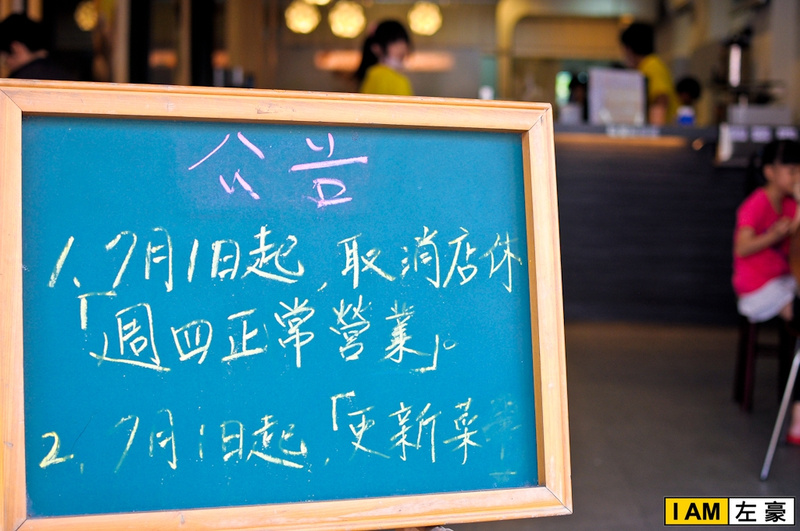 公告
1、7月1日起,取消店休
「週四正常營業」。
2、7月1日起,「更新菜
I AM 左豪